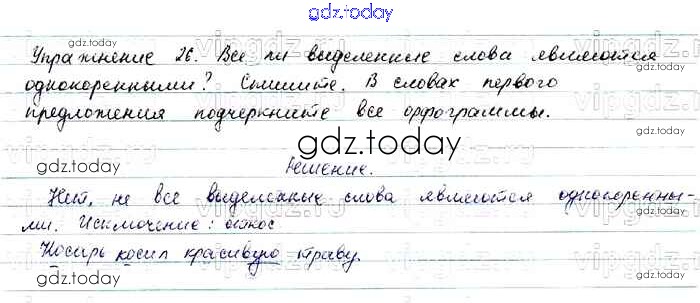 gdz.today
Упражнение 26. Все ли выделенные слова являются
однокоренными? Спишите. В словах первого
предложения подчеркните все орфограммы.
gdz.today
Решение.
Нет, не все выделенные слова являются однокоренны-
ми. Исключение: откос.
Косарь косил красивую траву.
gdz.today